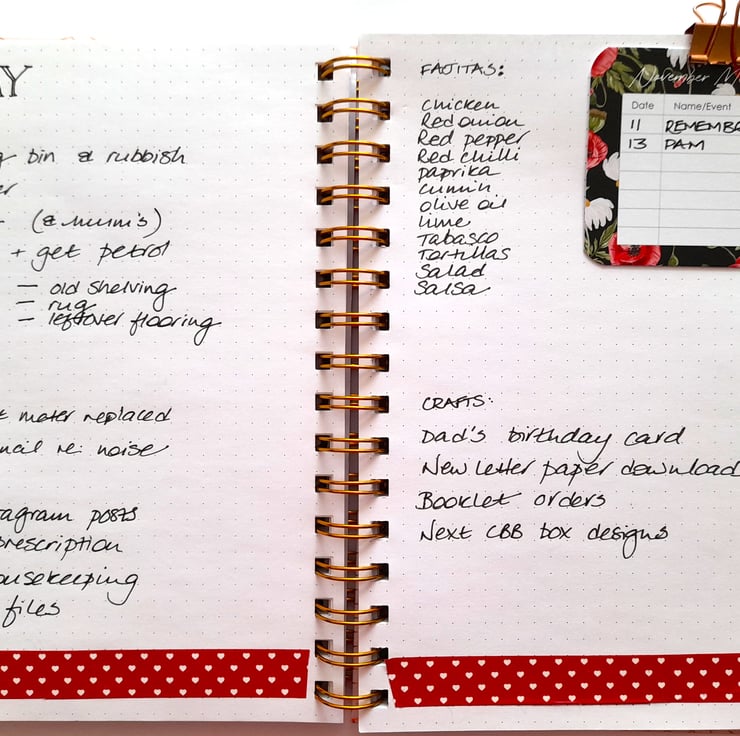 AY
bin & rubbish
(& mum's)
+ get petrol
– old shelving
– rug
– leftover flooring
meter replaced
re: noise
posts
prescription
files
FAJITAS:
Chicken
Red onion
Red pepper
Red chilli
paprika
cumin
olive oil
lime
Tabasco
Tortillas
Salad
Salsa
CRAFTS:
Dad's birthday card
New letter paper download
Booklet orders
Next CBB box designs
November
Date Name/Event
11 REMEMB
13 PAM